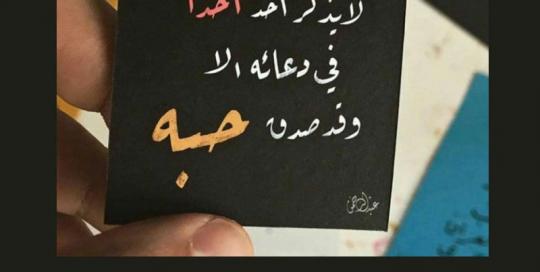 لا يذكر أحد أحداً
في دعائه الا
وقد صدق حبه